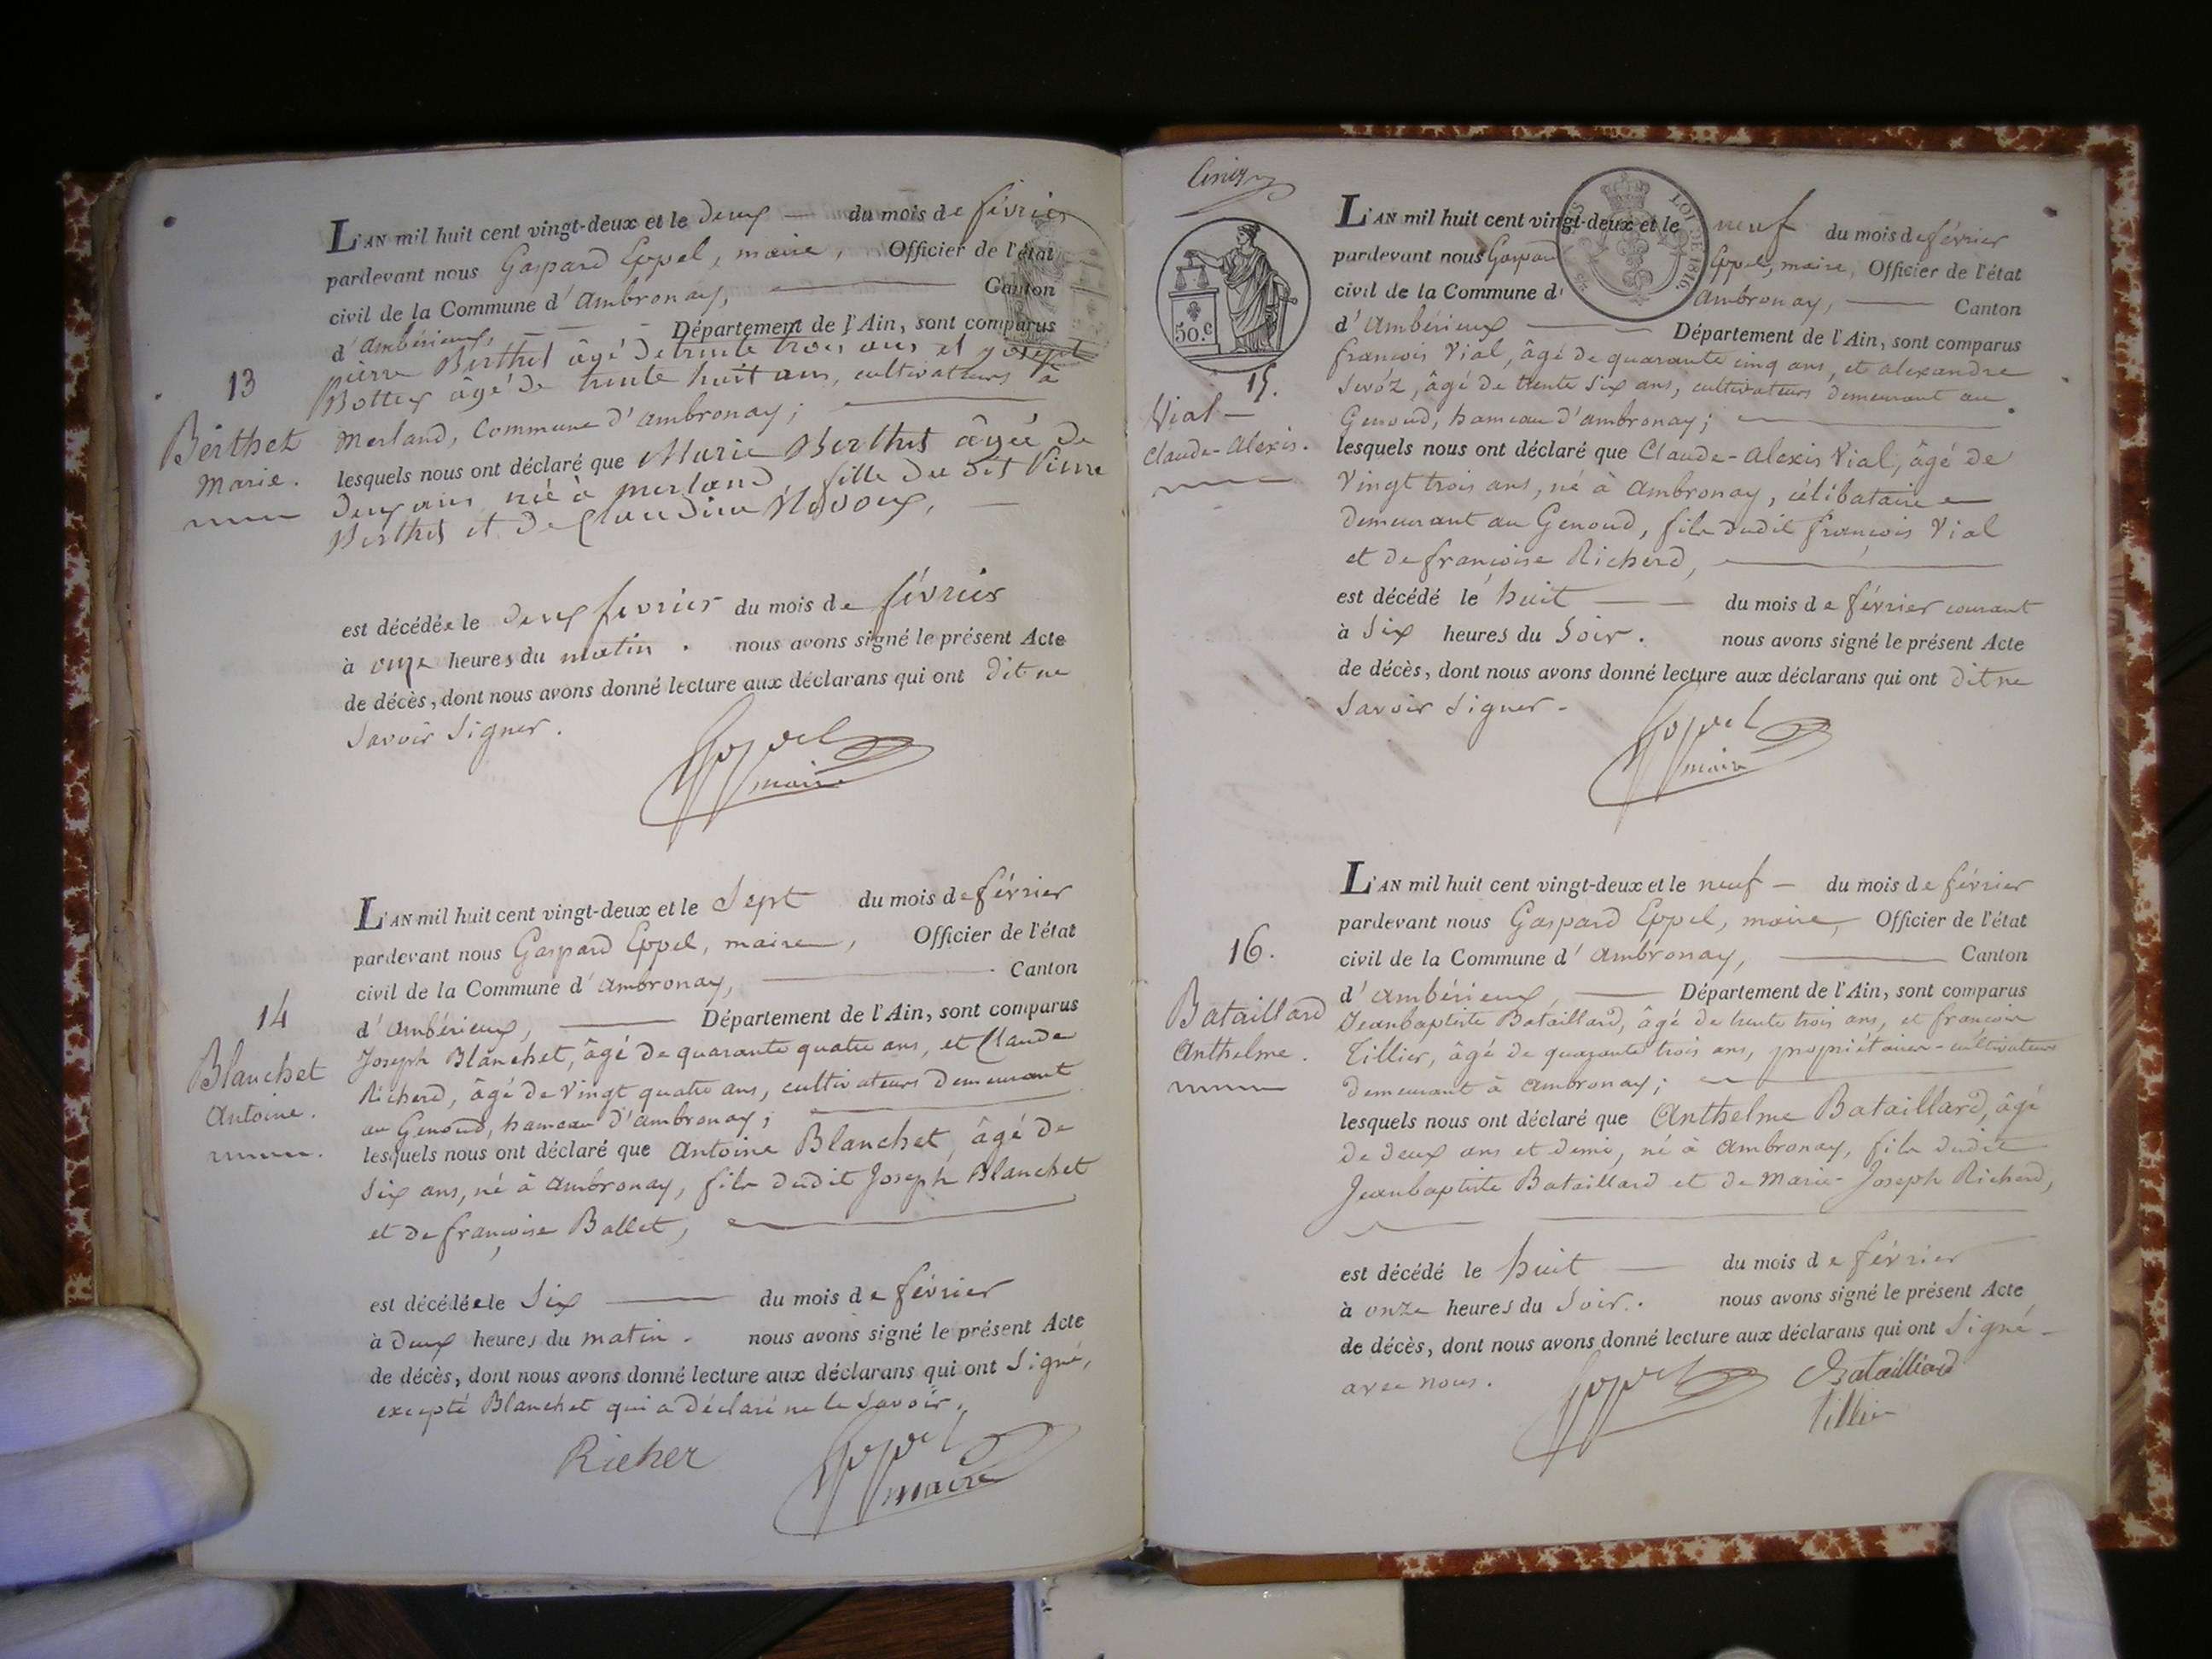 L'AN mil huit cent vingt-deux et le deux — du mois de février
pardevant nous Gaspard Eppel, maire, Officier de l'état
civil de la Commune d'ambronay, — Canton
d'ambérieux, — Département de l'Ain, sont comparus
pierre Berthet âgé de trente trois ans et joseph
Bottex âgé de trente huit ans, cultivateurs à
merland, Commune d'ambronay; —
lesquels nous ont déclaré que Marie Berthet âgée de
deux ans née à merland, fille du dit Pierre
Berthet et de Claudine
est décédée le deux fevrier du mois de février
à onze heures du matin. nous avons signé le présent Acte
de décès, dont nous avons donné lecture aux déclarans qui ont dit ne
savoir signer.
Eppel
maire
13
Berthet
Marie.
L'AN mil huit cent vingt-deux et le Sept du mois de février
pardevant nous Gaspard Eppel, maire, Officier de l'état
civil de la Commune d'ambronay, — Canton
d'ambérieux, — Département de l'Ain, sont comparus
Joseph Blanchet, âgé de quarante quatre ans, et Claude
Richerd, âgé de vingt quatre ans, cultivateurs demeurant
au Genoud, hameau d'ambronay;
lesquels nous ont déclaré que antoine Blanchet, âgé de
six ans, né à ambronay, fils dudit Joseph Blanchet
et de françoise Ballet, —
est décédée le six — du mois de février
à deux heures du matin. nous avons signé le présent Acte
de décès, dont nous avons donné lecture aux déclarans qui ont signé,
excepté Blanchet qui a déclaré ne le savoir.
Richer
Eppel
maire
14
Blanchet
antoine.
50.c
LOI DE 1816.
L'AN mil huit cent vingt-deux et le neuf du mois de février
pardevant nous Gaspard Eppel, maire, Officier de l'état
civil de la Commune d'ambronay, — Canton
d'ambérieux — Département de l'Ain, sont comparus
françois Vial, âgé de quarante cinq ans, et alexandre
Sevóz, âgé de trente six ans, cultivateurs demeurant au
Genoud, hameau d'ambronay; —
lesquels nous ont déclaré que Claude-alexis Vial, âgé de
vingt trois ans, né à ambronay, célibataire
demeurant au Genoud, fils dudit françois Vial
et de françoise Richerd, —
est décédé le huit — du mois de février courant
à six heures du soir. nous avons signé le présent Acte
de décès, dont nous avons donné lecture aux déclarans qui ont dit ne
savoir signer.
Eppel
maire
15.
Vial —
claude-alexis.
L'AN mil huit cent vingt-deux et le neuf — du mois de février
pardevant nous Gaspard Eppel, maire, Officier de l'état
civil de la Commune d'ambronay, — Canton
d'ambérieux, — Département de l'Ain, sont comparus
Jeanbaptiste Bataillard, âgé de trente trois ans, et françois
Tillier, âgé de quarante trois ans, propriétaires-cultivateurs
demeurant à ambronay; —
lesquels nous ont déclaré que Anthelme Bataillard, âgé
de deux ans et demi, né à ambronay, fils dudit
Jeanbaptiste Bataillard et de marie-Joseph Richerd,
est décédé le huit — du mois de février
à onze heures du soir. nous avons signé le présent Acte
de décès, dont nous avons donné lecture aux déclarans qui ont signé
avec nous.
Eppel
Batailliard
Tillier
16.
Bataillard
Anthelme.